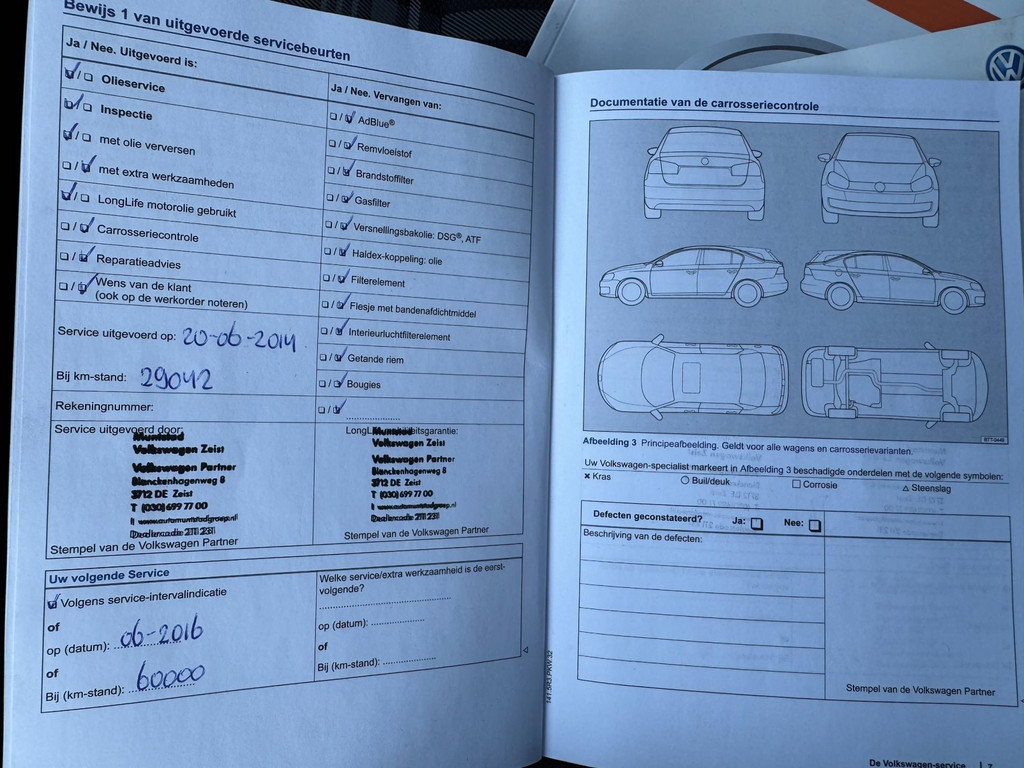 Bewijs 1 van uitgevoerde servicebeurten
Ja / Nee. Uitgevoerd is:
Olieservice
Inspectie
met olie verversen
met extra werkzaamheden
LongLife motorolie gebruikt
Carrosseriecontrole
Reparatieadvies
Wens van de klant
(ook op de werkorder noteren)
Service uitgevoerd op: 20-06-2014
Bij km-stand: 29042
Rekeningnummer:
Service uitgevoerd door:
Muntstad
Volkswagen Zeist
Volkswagen Partner
Blanckenhagenweg 8
3712 DE Zeist
T (030) 699 77 00
I www.automuntstadgroep.nl
Dealercode 211 231
Stempel van de Volkswagen Partner
Ja / Nee. Vervangen van:
AdBlue®
Remvloeistof
Brandstoffilter
Gasfilter
Versnellingsbakolie: DSG®, ATF
Haldex-koppeling: olie
Filterelement
Flesje met bandenafdichtmiddel
Interieurluchtfilterelement
Getande riem
Bougies
Muntstad
Volkswagen Zeist
Volkswagen Partner
Blanckenhagenweg 8
3712 DE Zeist
T (030) 699 77 00
I www.automuntstadgroep.nl
Dealercode 211 231
Stempel van de Volkswagen Partner
Uw volgende Service
Volgens service-intervalindicatie
of
op (datum): 06-2016
of
Bij (km-stand): 60000
Welke service/extra werkzaamheid is de eerst-
volgende?
op (datum):
of
Bij (km-stand):
141.5R3.PKW.32
Documentatie van de carrosseriecontrole
B7T-0446
Afbeelding 3 Principeafbeelding. Geldt voor alle wagens en carrosserievarianten.
Uw Volkswagen-specialist markeert in Afbeelding 3 beschadigde onderdelen met de volgende symbolen:
× Kras ○ Buil/deuk □ Corrosie △ Steenslag
Defecten geconstateerd? Ja: □ Nee: □
Beschrijving van de defecten:
Stempel van de Volkswagen Partner
De Volkswagen-service | 7